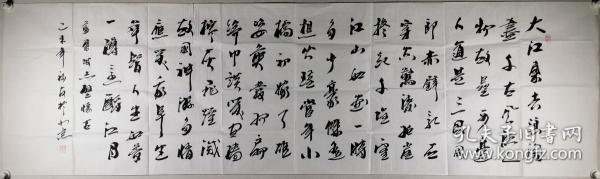 大江東去浪淘
盡千古风流
物故壘西邊
人道是三国周
郎赤壁乱石
穿空驚濤拍崖
捲起千堆雪
江山如画一時
多少豪傑遥
想公瑾當年小
橋初嫁了雄
姿英發羽扇
綸巾談笑間檣
櫓灰飛煙滅
故国神游多情
應笑我早生
華髮人生如夢
一樽還酹江月
赤壁懷古
孔夫子旧书网